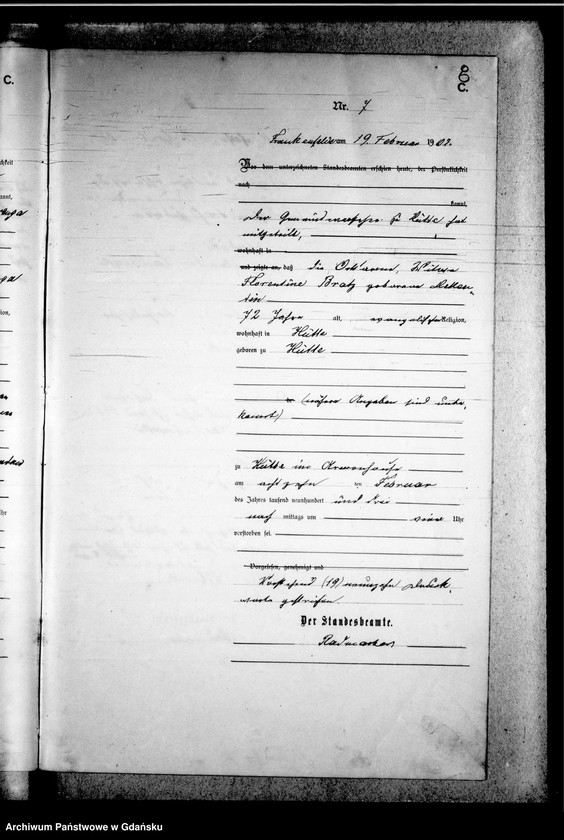 C.
C.
Nr. 7
am 19. Februar 1902.
Vor dem unterzeichneten Standesbeamten erschien heute, der Persönlichkeit
nach
kannt,
Der Gemeindevorsteher zu Hütte hat
mitgetheilt,
wohnhaft in
und zeigte an, daß die Ortsarme, Witwe
Florentine Bratz geborene
72 Jahre alt, evangelischer Religion,
wohnhaft in Hütte
geboren zu Hütte
(nähere Angaben sind unbe-
kannt)
zu Hütte im Armenhause
am achtzehn ten Februar
des Jahres tausend neunhundert und drei
nach mittags um Uhr
verstorben sei.
Vorgelesen, genehmigt und
Vorstehend (19) neunzehn Druck-
worte gestrichen.
Der Standesbeamte.
Archiwum Państwowe w Gdańsku